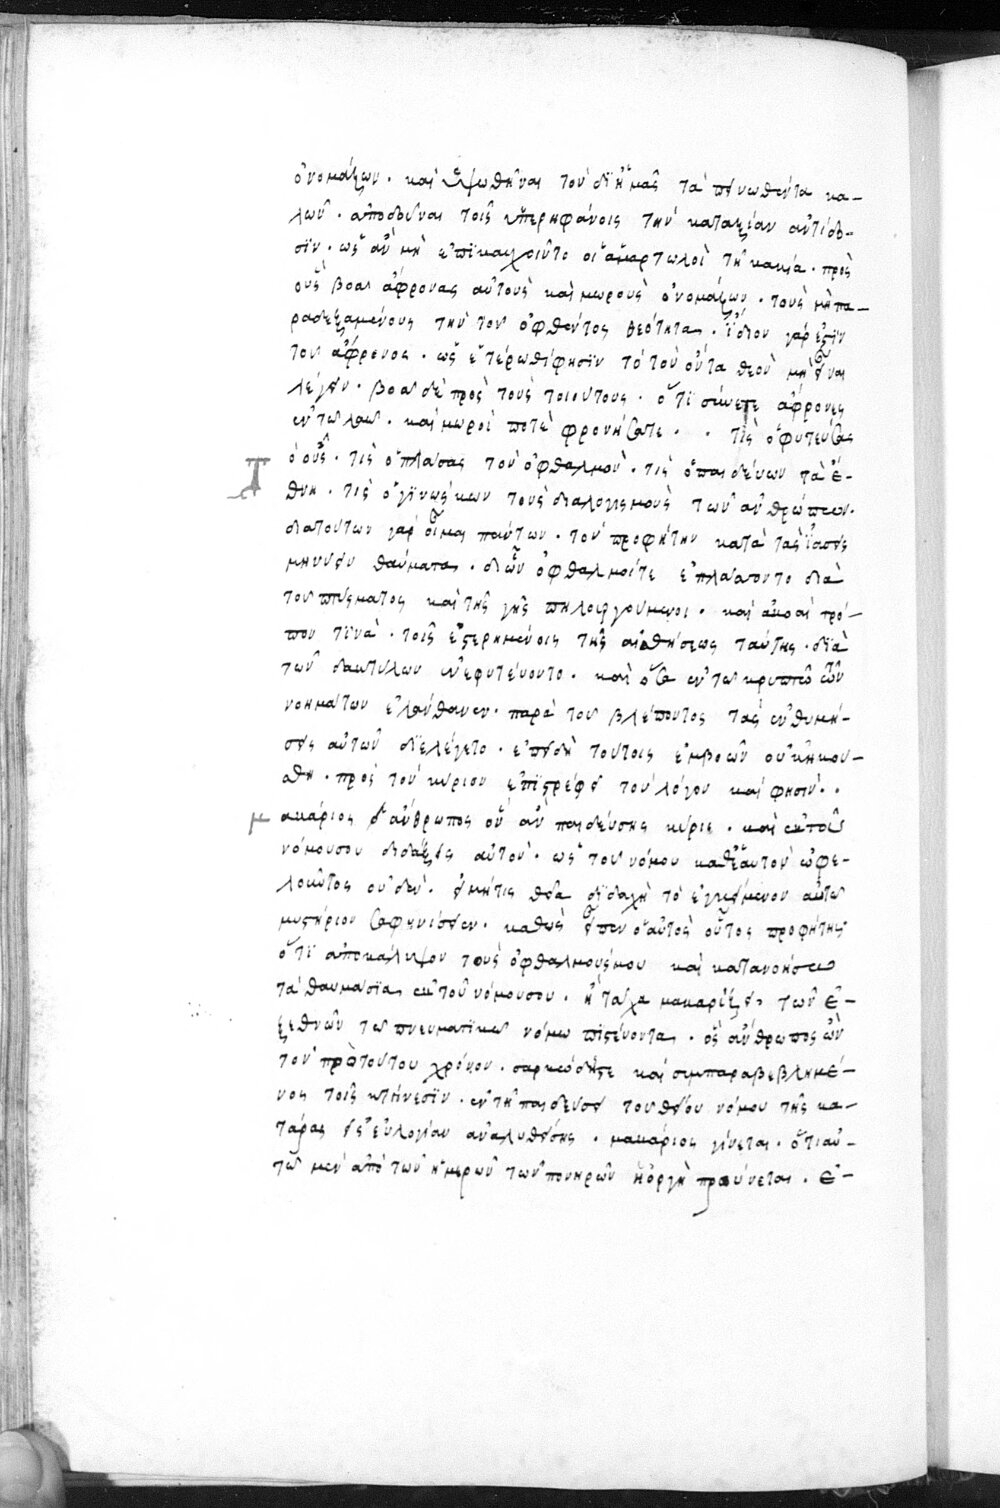 ὀνομάζων. καὶ ὑψωθῆναι τὸν δι' ἡμᾶς ταπεινωθέντα κα-
λῶν. ἀποδοῦναι τοῖς ὑπερηφάνοις τὴν καταξίαν ἀντίδο-
σιν. ὡς ἂν μὴ ἐπικαυχοῖντο οἱ ἁμαρτωλοὶ τῇ κακία. πρὸς
οὓς βοᾶ ἄφρονας αὐτοὺς καὶ μωροὺς ὀνομάζων. τοὺς μὴ πα-
ραδεξαμένους τὴν τοῦ ὀφθέντος θεότητα. ἴδιον γάρ ἐστιν
τοῦ ἄφρονος. ὡς ἑτέρωθι φησὶν τὸ τὸν ὄντα θεὸν μὴ εἶναι
λέγειν. βοᾶ δὲ πρὸς τοὺς τοιούτους. ὅτι σύνετε ἄφρονες
ἐν τῶ λαῶ. καὶ μωροὶ ποτὲ φρονήσατε. . τίς ὁ φυτεύσας
Τὸ οὖς. τίς ὁ πλάσας τὸν ὀφθαλμόν. τίς ὁ παιδεύων τὰ ἔ-
θνη. τίς ὁ γινώσκων τοὺς διαλογισμοὺς τῶν ἀνθρώπων.
διὰ τούτων γὰρ οἶμαι πάντων. τὸν προφήτην κατὰ τὰς ἰάσεις
μηνύειν θαύματα. δι' ὧν ὀφθαλμοί τε ἐπλάσαντο διὰ
τοῦ πτύσματος καὶ τῆς γῆς πηλουργούμενοι. καὶ ἀκοαὶ τρό-
πον τινὰ. τοῖς ἐστερημένοις τῆς αἰσθήσεως ταύτης. διὰ
τῶν δακτύλων ἐνεφυτεύοντο. καὶ ὅσα ἐν τῶ κρυπτῶ τῶν
νοημάτων ἐλάνθανεν. παρὰ τοῦ βλέποντος τὰς ἐνθυμή-
σεις αὐτῶν διελέγετο. ἐπειδὴ τούτοις ἐμβοῶν οὐκ ἠκού-
σθη. πρὸς τὸν κύριον ἐπιστρέφει τὸν λόγον καὶ φησίν. .
μακάριος ὁ ἄνθρωπος ὃν ἂν παιδεύσης κύριε. καὶ ἐκ τοῦ
νόμου σου διδάξεις αὐτόν. ὡς τοῦ νόμου καθ' ἑαυτὸν ὠφε-
λοῦντος οὐδέν. εἰ μή τις θεία διδαχὴ τὸ ἐγκείμενον αὐτῶ
μυστήριον σαφηνίσειεν. καθὼς εἶπεν ὁ αὐτὸς οὗτος προφήτης
ὅτι ἀποκάλυψον τοὺς ὀφθαλμούς μου καὶ κατανοήσω
τὰ θαυμάσια ἐκ τοῦ νόμου σου. ἢ τάχα μακαρίζει τῶν ἐ-
ξ ἐθνῶν τῶ πνευματικῶ νόμω πιστεύοντα. ὃς ἄνθρωπος ὢν
τὸν πρὸ τούτου χρόνον. σαρκώδης τε καὶ συμπαραβεβλημέ-
νος τοῖς κτήνεσιν. ἐν τῆ παιδεύσει τοῦ θείου νόμου τῆς κα-
τάρας εἰς εὐλογίαν ἀναλυθείσης. μακάριος γίνεται. ὅτι αὐ-
τῶ μὲν ἀπὸ τῶν ἡμερῶν τῶν πονηρῶν ἡ ὀργὴ πραΰνεται. ἐ-